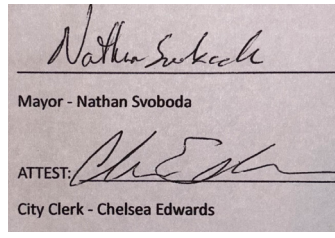 Nathan Svoboda
Mayor - Nathan Svoboda
ATTEST:
City Clerk - Chelsea Edwards